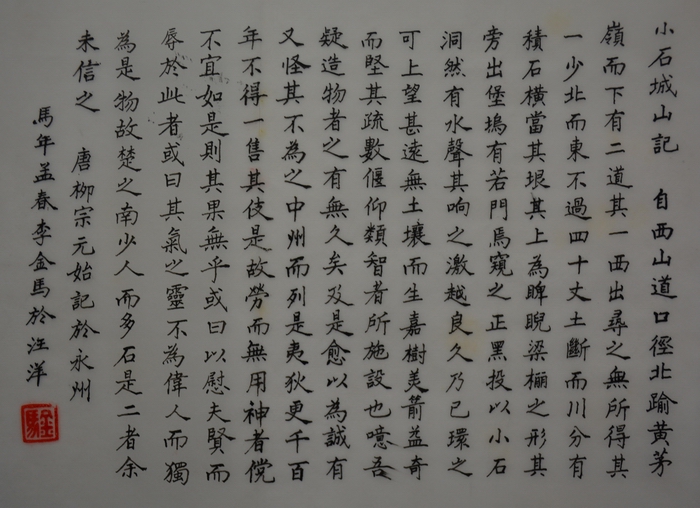 小石城山記 自西山道口徑北踰黄茅
嶺而下有二道其一西出尋之無所得其
一少北而東不過四十丈土斷而川分有
積石橫當其垠其上為睥睨梁欐之形其
旁出堡塢有若門焉窺之正黑投以小石
洞然有水聲其响之激越良久乃已環之
可上望甚遠無土壤而生嘉樹美箭益奇
而堅其疏數偃仰類智者所施設也噫吾
疑造物者之有無久矣及是愈以為誠有
又怪其不為之中州而列是夷狄更千百
年不得一售其伎是故勞而無用神者儻
不宜如是則其果無乎或曰以慰夫賢而
辱於此者或曰其氣之靈不為偉人而獨
為是物故楚之南少人而多石是二者余
未信之 唐柳宗元始記於永州
馬年孟春李金馬於汪洋